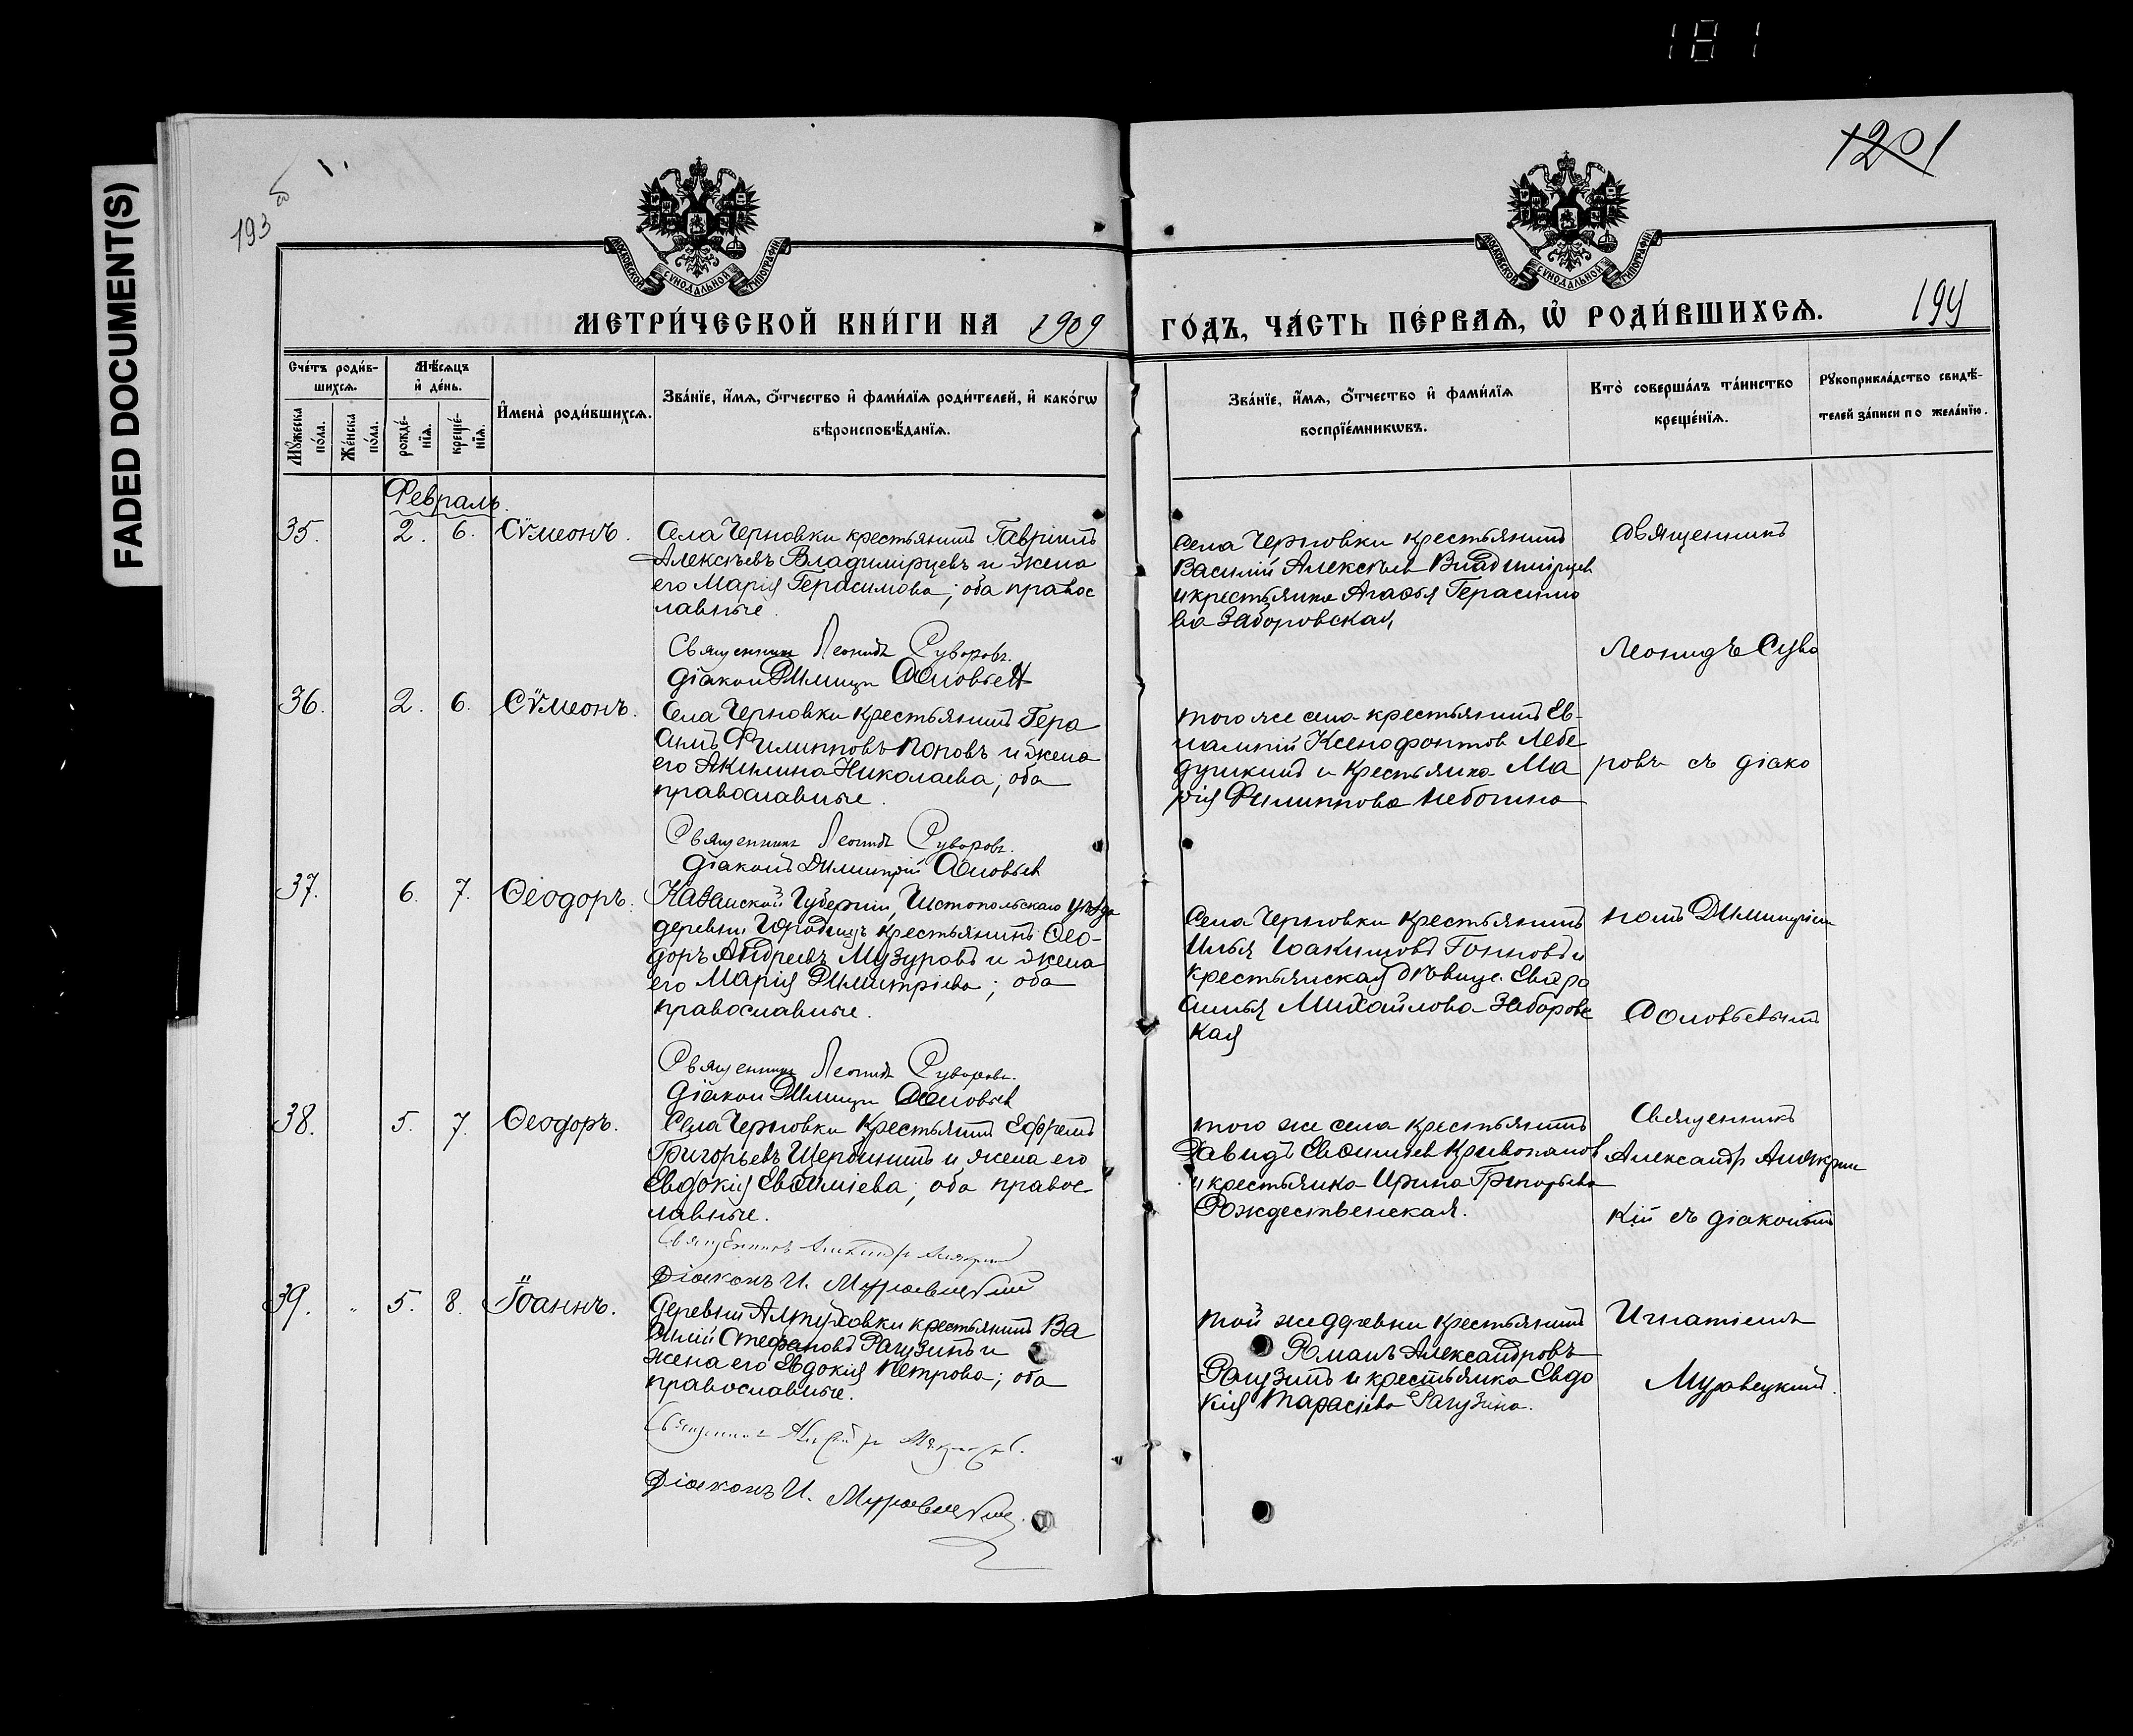 181
FADED DOCUMENT(S)
193 об
1201
194
МОСКОВСКОЙ СУНОДАЛЬНОЙ ТИПОГРАФІИ
МОСКОВСКОЙ СУНОДАЛЬНОЙ ТИПОГРАФІИ
МЕТРИ́ЧЕСКОЙ КНИ́ГИ НА 1909
ГО́ДЪ, ЧА́СТЬ ПЕ́РВАѦ, Ѡ РОДИ́ВШИХСѦ.
Сче́тъ роди́в-
шихсѧ.
Мꙋ́жеска по́ла.
Же́нска по́ла.
Мѣ́сѧцъ
и де́нь.
рожде́-
нїѧ.
креще́-
нїѧ.
Имена̀ роди́вшихсѧ.
Зва́нїе, и́мѧ, о́тчество и фами́лїѧ роди́телей, и како́гѡ
вѣроисповѣ́данїѧ.
Зва́нїе, и́мѧ, о́тчество и фами́лїѧ
воспрїе́мникѡвъ.
Кто̀ соверша́лъ та́инство
креще́нїѧ.
Рꙋкоприкла́дство свидѣ́-
телей за́писи по жела́нїю.
Февраль.
35. 2. 6. Сѵмеонъ.
Села Черновки крестьянинъ Гавріилъ
Алексѣевъ Владимірцевъ и жена
его Марія Герасимова; оба правос
лавные.
Священникъ Леонидъ Суворовъ.
Діаконъ Димитрій Соловьев
Села Черновки крестьянинъ
Василій Алексѣев Владимірцев
и крестьянка Агаѳья Герасимо
ва Заборовская
Священникъ
Леонидъ Суво
36. 2. 6. Сѵмеонъ.
Села Черновки крестьянинъ Гера
симъ Филипповъ Поповъ и жена
его Акилина Николаева; оба
православные.
Священникъ Леонидъ Суворовъ.
Діаконъ Димитрій Соловьев
того же села крестьянинъ Ев-
лампій Ксенофонтов Лебе
душкинъ и крестьянка Ма
рія Филиппова
ровъ съ діако
37. 6. 7. Ѳеодоръ.
Казанской Губерніи, Чистопольскаго уѣзда
деревни Городищъ крестьянинъ Ѳео-
доръ Андреевъ Музуровъ и жена
его Марія Димитріева; оба
православные.
Священникъ Леонидъ Суворовъ.
Діаконъ Димитрій Соловьев
Села Черновки крестьянинъ
Илья Іоакимовъ и
крестьянская дѣвица
Михайлова Заборовс
кая
номъ Димитріем
Соловьевымъ
38. 5. 7. Ѳеодоръ.
Села Черновки крестьянинъ Ефремъ
Григорьевъ Щербининъ и жена его
Евдокія Евѳиміева; оба правос-
лавные.
Священникъ Александръ
Діаконъ И. Муравецкій
того же села крестьянинъ
Давидъ Евѳиміев Кривопалов
и крестьянка Ирина Григорьева
Рождественская.
Священникъ
Александр
кій съ діакономъ
39. " 5. 8. Іоаннъ.
деревни Алтуховки крестьянинъ Ва
силій Стефановъ Рагузинъ и
жена его Евдокія Петрова; оба
православные.
Священникъ
Діаконъ И. Муравецкій.
той же деревни крестьянинъ
Романъ Александровъ
Рагузинъ и крестьянка Евдо
кія Тарасіева Рагузина.
Игнатіемъ
Муравецкимъ.